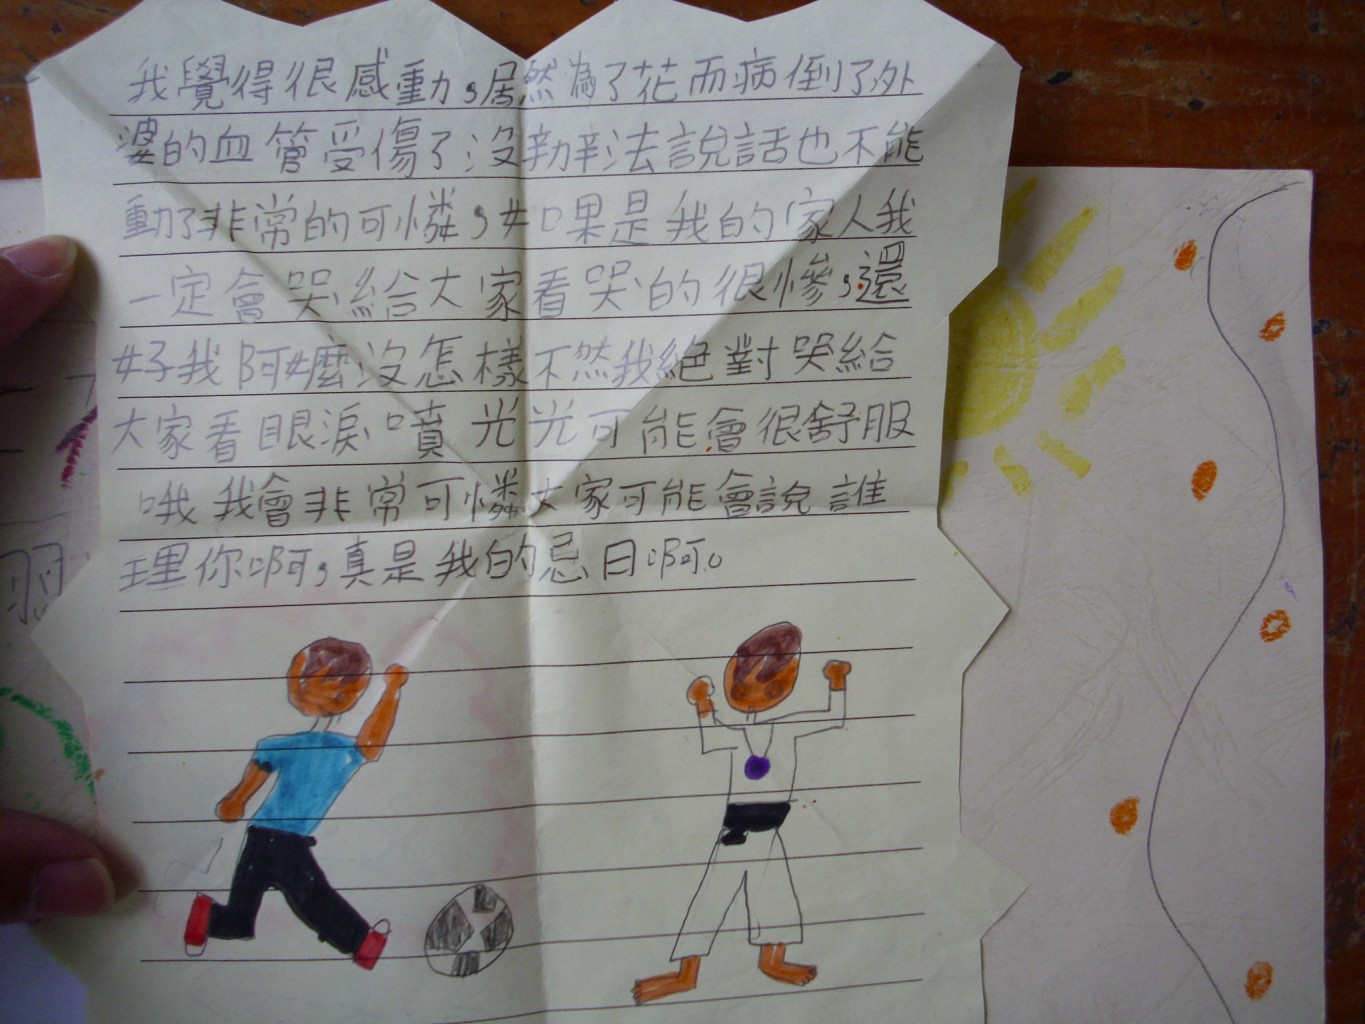 我覺得很感動，居然為了花而病倒了外
婆的血管受傷了沒辦法說話也不能
動了非常的可憐，如果是我的家人我
一定會哭給大家看哭的很慘，還
好我阿嬤沒怎樣不然我絕對哭給
大家看眼淚噴光光可能會很舒服
哦我會非常可憐大家可能會說誰
理你啊，真是我的忌日啊。